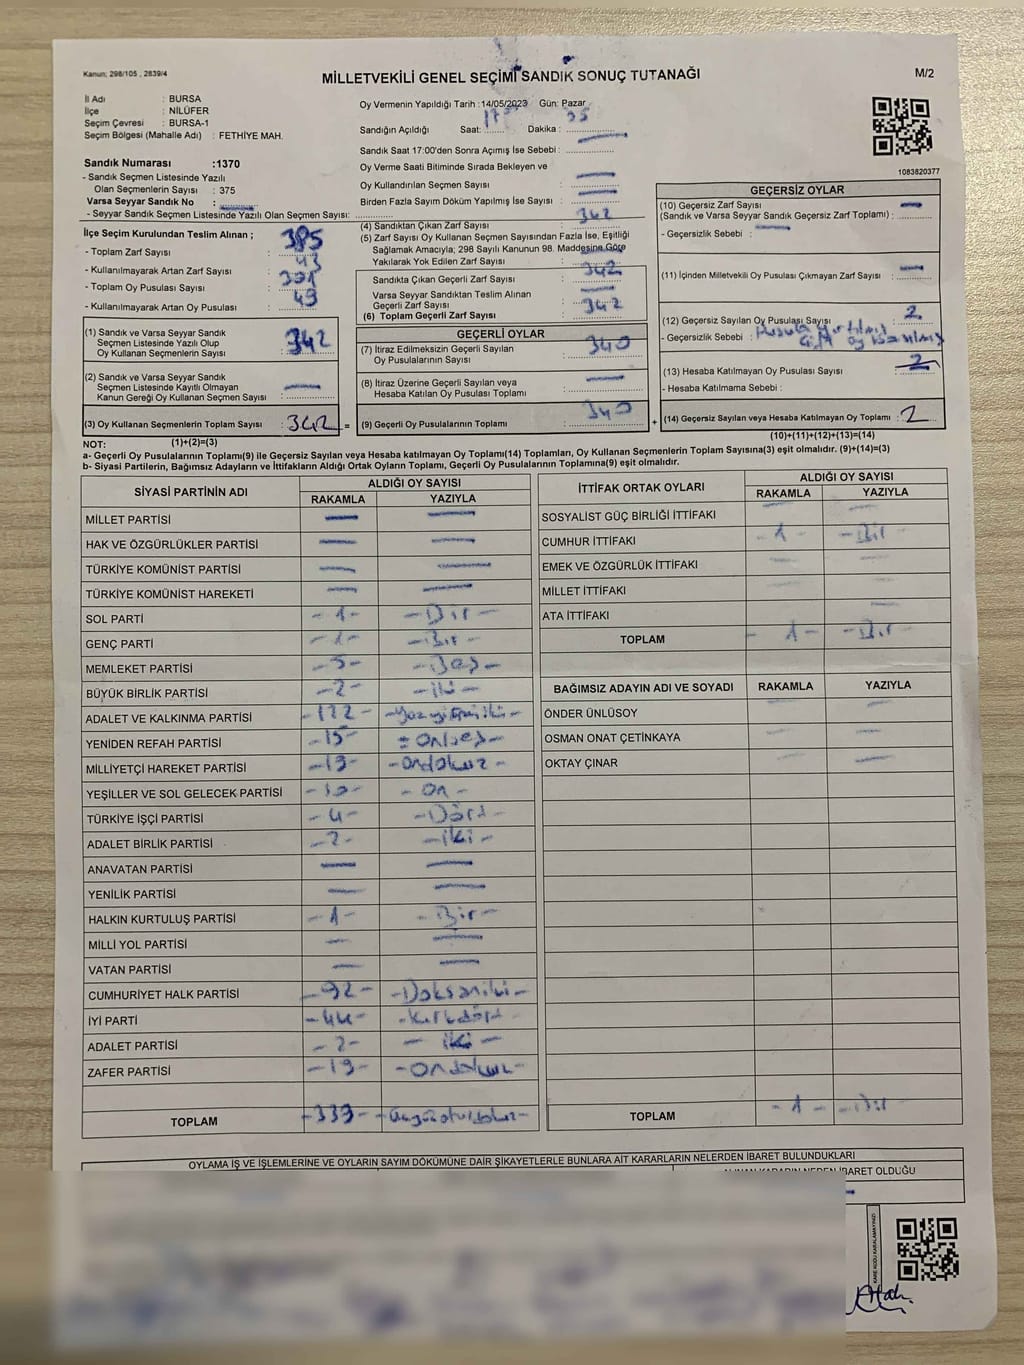 Kanun; 298/105 , 2839/4
MİLLETVEKİLİ GENEL SEÇİMİ SANDIK SONUÇ TUTANAĞI
M/2
İl Adı : BURSA
İlçe : NİLÜFER
Seçim Çevresi : BURSA-1
Seçim Bölgesi (Mahalle Adı) : FETHİYE MAH.
Sandık Numarası :1370
- Sandık Seçmen Listesinde Yazılı
Olan Seçmenlerin Sayısı : 375
Varsa Seyyar Sandık No :
- Seyyar Sandık Seçmen Listesinde Yazılı Olan Seçmen Sayısı:
Oy Vermenin Yapıldığı Tarih :14/05/2023 Gün: Pazar
Sandığın Açıldığı Saat: 17 Dakika : 35
Sandık Saat 17:00'den Sonra Açımış İse Sebebi :
Oy Verme Saati Bitiminde Sırada Bekleyen ve
Oy Kullandırılan Seçmen Sayısı :
Birden Fazla Sayım Döküm Yapılmış İse Sayısı :
1083820377
İlçe Seçim Kurulundan Teslim Alınan ;
- Toplam Zarf Sayısı : 385
- Kullanılmayarak Artan Zarf Sayısı : 43
- Toplam Oy Pusulası Sayısı :
- Kullanılmayarak Artan Oy Pusulası :
(1) Sandık ve Varsa Seyyar Sandık
Seçmen Listesinde Yazılı Olup
Oy Kullanan Seçmenlerin Sayısı : 342
(2) Sandık ve Varsa Seyyar Sandık
Seçmen Listesinde Kayıtlı Olmayan
Kanun Gereği Oy Kullanan Seçmen Sayısı :
(3) Oy Kullanan Seçmenlerin Toplam Sayısı : 342 =
(1)+(2)=(3)
(4) Sandıktan Çıkan Zarf Sayısı : 342
(5) Zarf Sayısı Oy Kullanan Seçmen Sayısından Fazla İse, Eşitliği
Sağlamak Amacıyla; 298 Sayılı Kanunun 98. Maddesine Göre
Yakılarak Yok Edilen Zarf Sayısı :
Sandıkta Çıkan Geçerli Zarf Sayısı : 342
Varsa Seyyar Sandıktan Teslim Alınan
Geçerli Zarf Sayısı :
(6) Toplam Geçerli Zarf Sayısı : 342
GEÇERLİ OYLAR
(7) İtiraz Edilmeksizin Geçerli Sayılan
Oy Pusulalarının Sayısı : 340
(8) İtiraz Üzerine Geçerli Sayılan veya
Hesaba Katılan Oy Pusulası Toplamı :
(9) Geçerli Oy Pusulalarının Toplamı : 340 +
GEÇERSİZ OYLAR
(10) Geçersiz Zarf Sayısı :
(Sandık ve Varsa Seyyar Sandık Geçersiz Zarf Toplamı)
- Geçersizlik Sebebi :
(11) İçinden Milletvekili Oy Pusulası Çıkmayan Zarf Sayısı :
(12) Geçersiz Sayılan Oy Pusulası Sayısı : 2
- Geçersizlik Sebebi : Pusula yırtılmış
çift oy basılmış
(13) Hesaba Katılmayan Oy Pusulası Sayısı : 2
- Hesaba Katılmama Sebebi :
(14) Geçersiz Sayılan veya Hesaba Katılmayan Oy Toplamı : 2
(10)+(11)+(12)+(13)=(14)
NOT:
a- Geçerli Oy Pusulalarının Toplamı(9) ile Geçersiz Sayılan veya Hesaba katılmayan Oy Toplamı(14) Toplamları, Oy Kullanan Seçmenlerin Toplam Sayısına(3) eşit olmalıdır. (9)+(14)=(3)
b- Siyasi Partilerin, Bağımsız Adayların ve İttifakların Aldığı Ortak Oyların Toplamı, Geçerli Oy Pusulalarının Toplamına(9) eşit olmalıdır.
SİYASİ PARTİNİN ADI ALDIĞI OY SAYISI
RAKAMLA YAZIYLA
MİLLET PARTİSİ
HAK VE ÖZGÜRLÜKLER PARTİSİ
TÜRKİYE KOMÜNİST PARTİSİ
TÜRKİYE KOMÜNİST HAREKETİ
SOL PARTİ - 1 - - Bir -
GENÇ PARTİ - 1 - - Bir -
MEMLEKET PARTİSİ - 5 - - Beş -
BÜYÜK BİRLİK PARTİSİ - 2 - - iki -
ADALET VE KALKINMA PARTİSİ - 122 - - Yüzyirmiiki -
YENİDEN REFAH PARTİSİ - 15 - - Onbeş -
MİLLİYETÇİ HAREKET PARTİSİ - 19 - - Ondokuz -
YEŞİLLER VE SOL GELECEK PARTİSİ - 10 - - On -
TÜRKİYE İŞÇİ PARTİSİ - 4 - - Dört -
ADALET BİRLİK PARTİSİ - 2 - - iki -
ANAVATAN PARTİSİ
YENİLİK PARTİSİ
HALKIN KURTULUŞ PARTİSİ - 1 - - Bir -
MİLLİ YOL PARTİSİ
VATAN PARTİSİ
CUMHURİYET HALK PARTİSİ - 92 - - Doksaniki -
İYİ PARTİ - 44 - - Kırkdört -
ADALET PARTİSİ - 2 - - iki -
ZAFER PARTİSİ - 19 - - Ondokuz -
TOPLAM - 339 - - üçyüzotuzdokuz -
İTTİFAK ORTAK OYLARI ALDIĞI OY SAYISI
RAKAMLA YAZIYLA
SOSYALİST GÜÇ BİRLİĞİ İTTİFAKI
CUMHUR İTTİFAKI - 1 - - Bir -
EMEK VE ÖZGÜRLÜK İTTİFAKI
MİLLET İTTİFAKI
ATA İTTİFAKI
TOPLAM - 1 - - Bir -
BAĞIMSIZ ADAYIN ADI VE SOYADI RAKAMLA YAZIYLA
ÖNDER ÜNLÜSOY
OSMAN ONAT ÇETİNKAYA
OKTAY ÇINAR
TOPLAM - 1 - - Bir -
OYLAMA İŞ VE İŞLEMLERİNE VE OYLARIN SAYIM DÖKÜMÜNE DAİR ŞİKAYETLERLE BUNLARA AİT KARARLARIN NELERDEN İBARET BULUNDUKLARI
ALINAN KARARIN NEDEN İBARET OLDUĞU